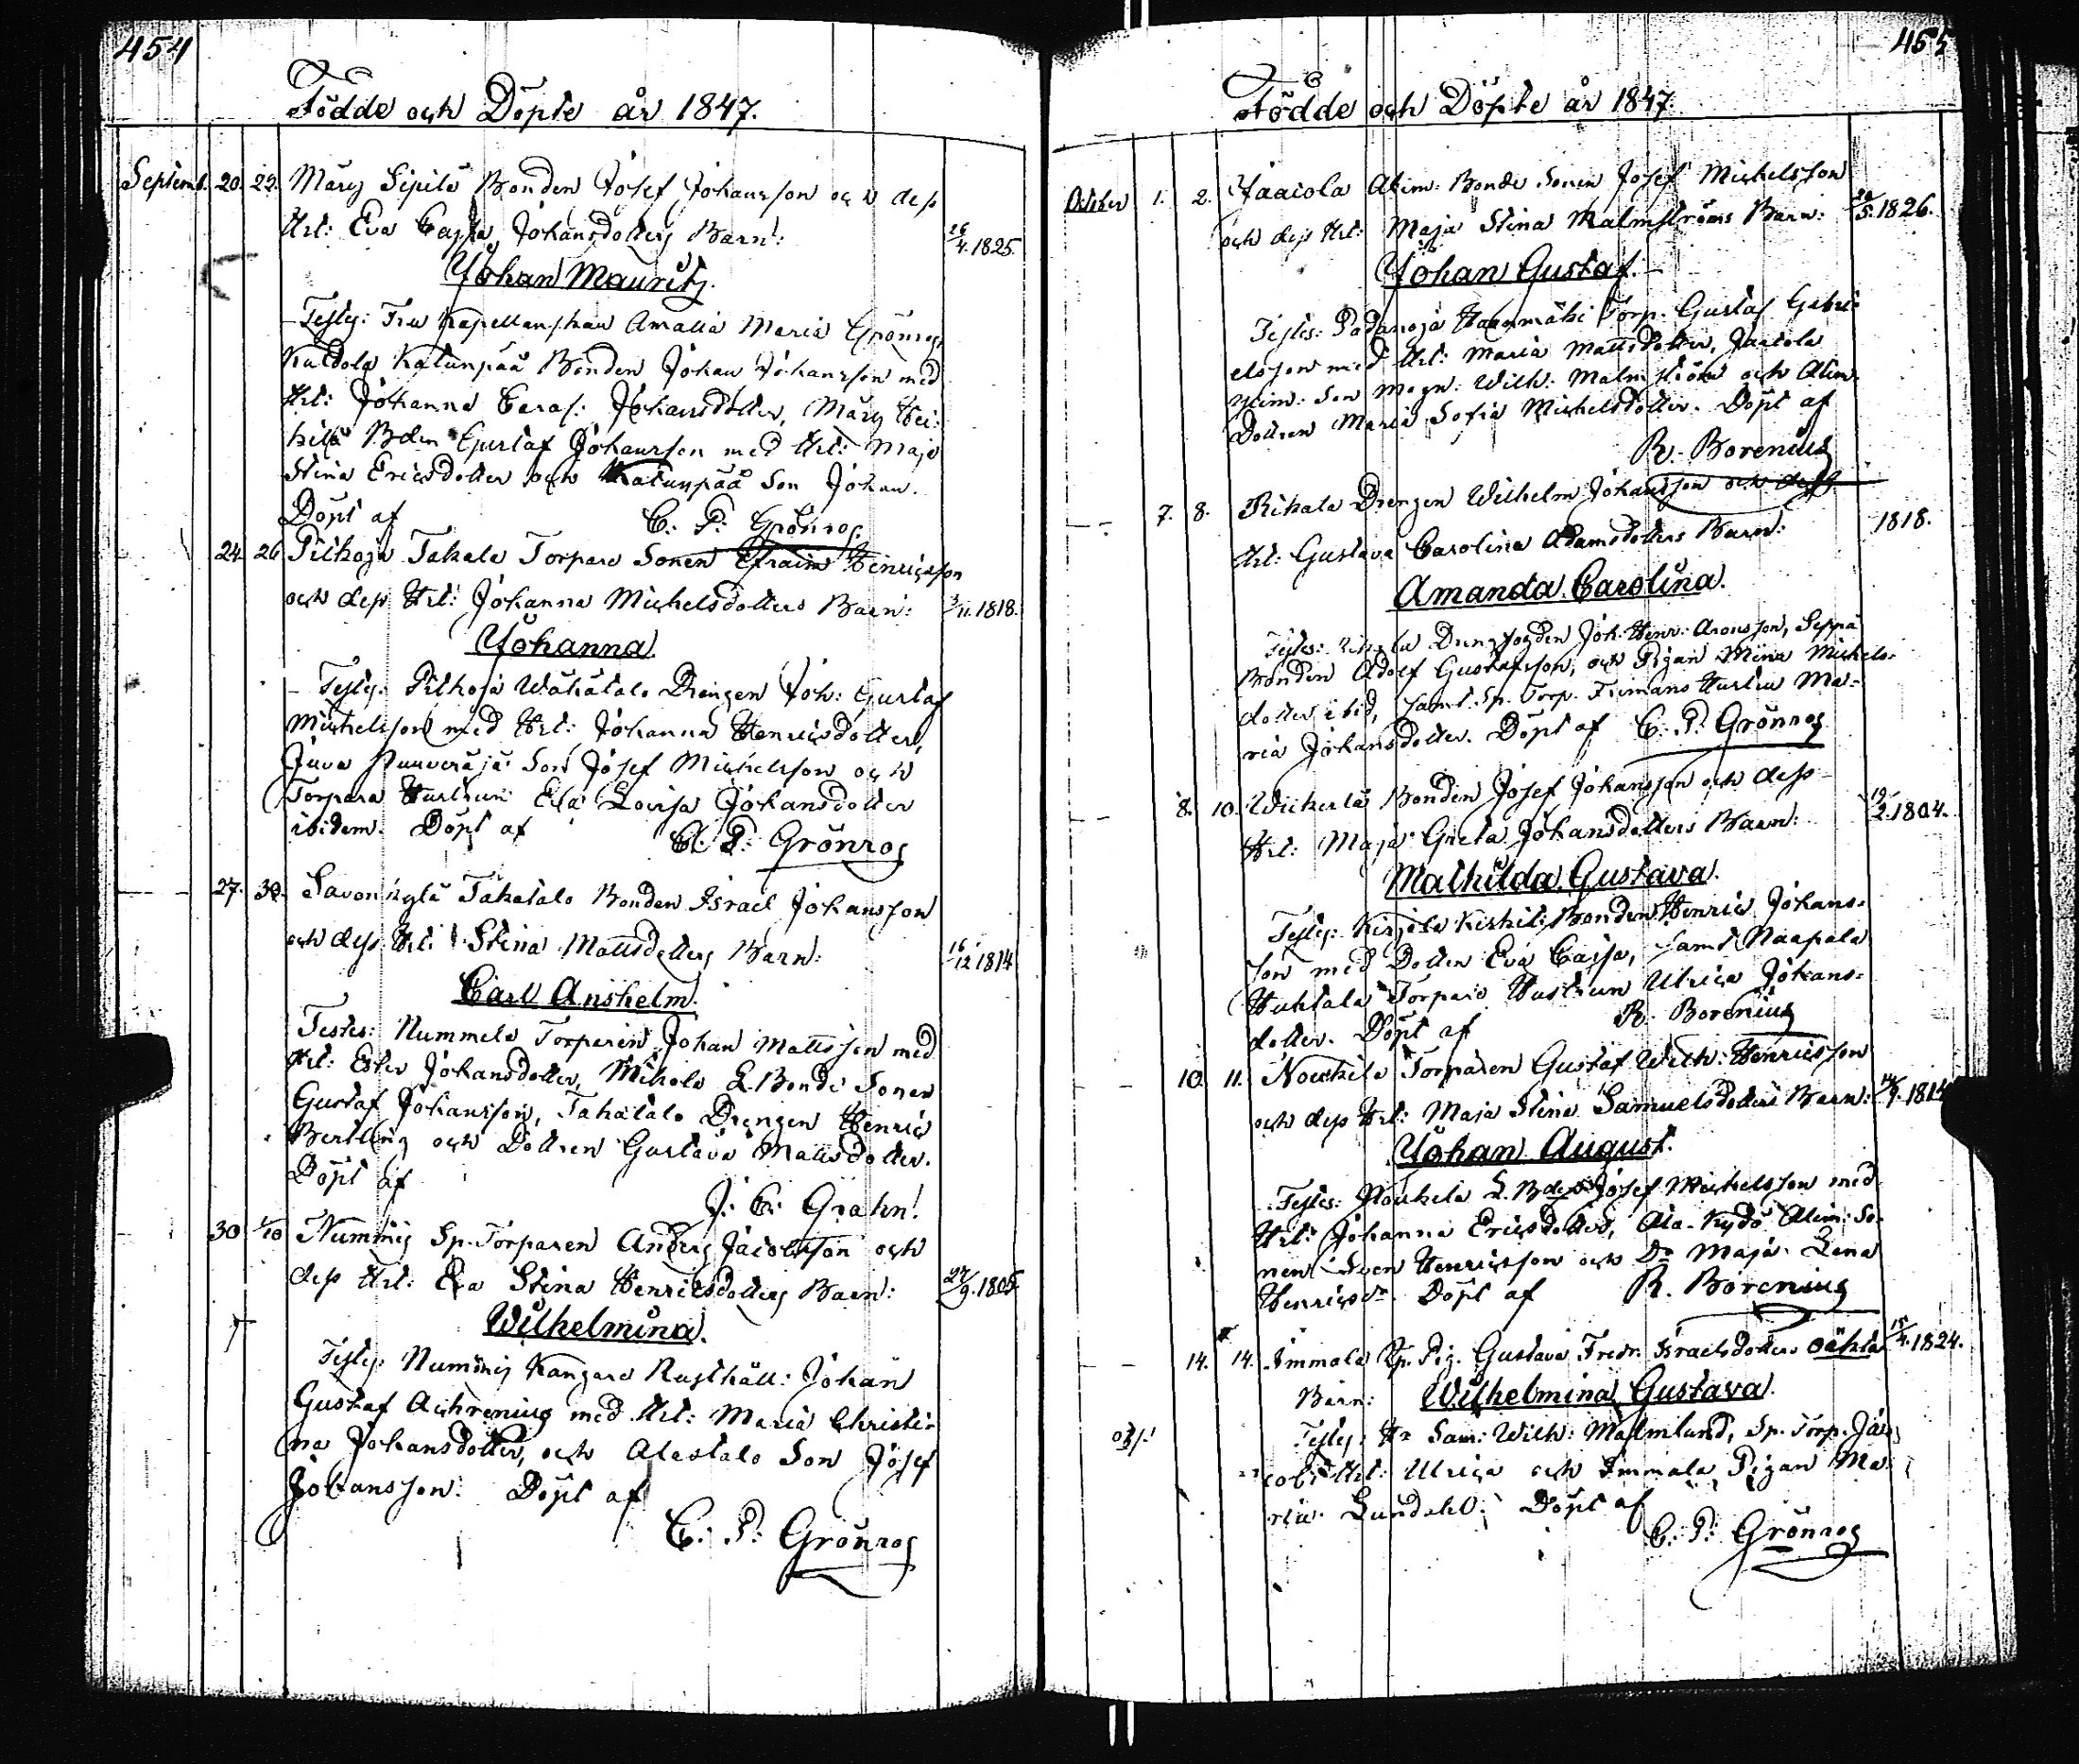 454
Födde och Döpte år 1847.
Septemb. 20. 22. Märy Sipilä Bonden Josef Johansson och dess
Hst: Eva Cajsa Johansdotters Barn: 16/4. 1825.
Johan Mauritz.
Testes: Fru Kapellanskan Amalia Maria Grönros,
Katunpää Bonden Johan Johansson med
Hst: Johanna Johansdotter, Märy Hei-
kilä Bden Gustaf Johansson med Hst: Maja
Stina Ericsdotter och Katunpää Son Johan.
Döpt af C. P: Grönros.
24. 26. Pilhoja Takala Torpare Sonen Efraim Henricsson
och dess Hst: Johanna Michelsdotters Barn: 3/11. 1818.
Johanna.
Testes: Pilhoja Drengen Joh: Gustaf
Michelsson med Hst: Johanna Henricsdotter,
Son Josef Michelsson och
Torpare Hustrun Eva Lovisa Johansdotter
ibidem. Döpt af C. P: Grönros
27. 30. Savonkylä Takatalo Bonden Israel Johansson
och dess Hst: Stina Mattsdotters Barn: 16/12 1814
Carl Anshelm.
Testes: Nummela Torparen Johan Mattsson med
Hst: Ester Johansdotter, Mikola L. Bonde Sonen
Gustaf Johansson, Takatalo Drengen Henric
Bertling och Dottren Gustava Mattsdotter.
Döpt af J: C: Grahn.
30 1/10 Nummis Sp. Torparen Anders Jacobsson och
dess Hst: Eva Stina Henricsdotters Barn: 27/9. 1805.
Wilhelmina.
Testes: Nummis Kangare Rusthåll: Johan
Gustaf Achrenius med Hst: Maria Christi-
na Johansdotter, och Alastalo Son Josef
Johansson. Döpt af
C. P: Grönros
455
Födde och Döpte år 1847.
October 1. 2. Jaacola Bonde Sonen Josef Michelsson
och dess Hst: Maja Stina Malmströms Barn: 5. 1826.
Johan Gustaf.
Testes: Padanoja Torp. Gustaf Gabri-
elsson med Hst: Maria Mattsdotter, Jaacola
Son Magn: Wilh: Malmström och
Dottren Maria Sofia Michelsdotter. Döpt af
R. Borenius
7. 8. Rikala Drengen Wilhelm Johansson och dess
Hst: Gustava Carolina Adamsdotters Barn: 1818.
Amanda Carolina.
Testes: Drengfogden Joh. Henr: Aronsson, Seppä
Bonden Adolf Gustafsson, och Pigan Mina Michels-
dotter ibid, samt Sp. Torp. Hustru Ma-
ria Johansdotter. Döpt af C. P: Grönros
8. 10. Bonden Josef Johansson och dess
Hst: Maja Greta Johansdotters Barn: 19/2. 1804.
Mathilda Gustava.
Testes: Kirjola Bonden Henric Johans-
son med Dottren Eva Cajsa, samt Naapala
Huhtala Torpare Hustrun Ulrica Johans-
dotter. Döpt af R. Borenius
10. 11. Noukila Torparen Gustaf Wilh: Henricsson
och dess Hst: Maja Stina Samuelsdotters Barn: 1814
Johan August.
Testes: Noukila L. Bden Josef Michelsson med
Hst: Johanna Ericsdotter, So-
nen Sven Henricsson och Do Maja Lena
Henricsdr. Döpt af R. Borenius
14. 14. Immala Pig. Gustava Fredr. Israelsdotters oäkta 15/4. 1824.
Barn: Wilhelmina Gustava.
Testes: Hr Sam: Wilh: Malmlund, Sp. Torp. Ja-
cobs Hst: Ulrica och Immala Pigan Ma-
ria Lundahl. Döpt af
C: P: Grönros